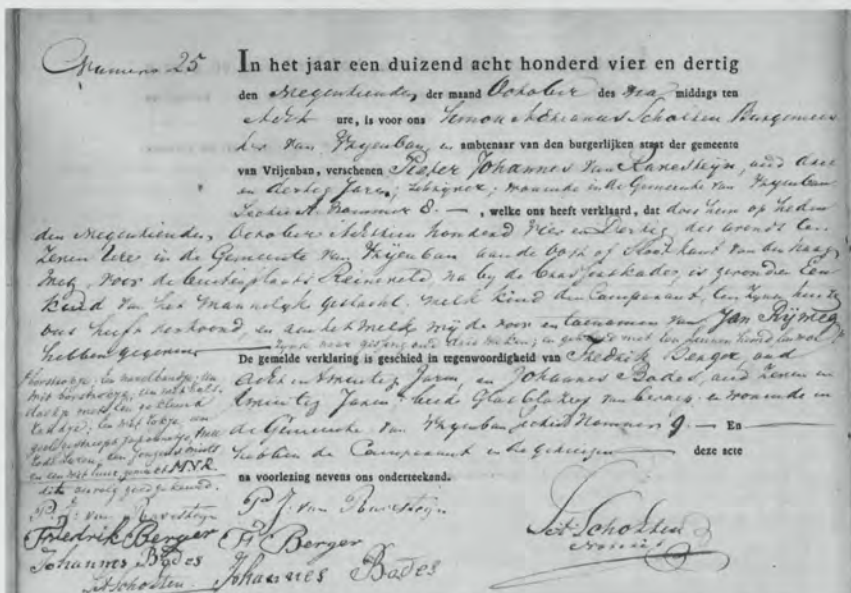 Numero 25
In het jaar een duizend acht honderd vier en dertig
den Negentienden der maand October des na middags ten
Acht ure, is voor ons Simon Adrianus Scholten Burgemees
ter van Vryenban en ambtenaar van den burgerlijken staat der gemeente
van Vrijenban, verschenen Pieter Johannes van Ravesteijn, oud drie
en dertig Jaren; wonende in de Gemeente van Vryenban
Sectie A. Nommer 8. — , welke ons heeft verklaard, dat door hem op heden
den Negentienden October Achttien honderd Vier en Dertig des avonds ten
Zeven Ure in de Gemeente van Vryenban aan de Oost of kant van den Haag
weg, voor de buitenplaats na by de is gevonden een
kind van het Mannelyk geslacht welk kind den Comparant, ten Zynen huize
ons heeft vertoond, en aan het welk wij de voor en toenamen van Jan Rijweg
hebben gegeven
zynde naar gissing oud drie weken; en gekleed met een
De gemelde verklaring is geschied in tegenwoordigheid van Fredrik Berger oud
Acht en twintig Jaren, en Johannes Bades, oud Zeven en
twintig Jaren beide Glasblazers van beroep en wonende in
de Gemeente van Vryenban Sectie Nommer 9. — En
hebben de Comparant en de getuigen deze acte
na voorlezing nevens ons onderteekend.
borstrokje; een navelbandje; een
wit een
met een
een wit een
gestreept
een
en een wit luur gemerkt M.V.R.
dit goedgekeurd.
P. J. van Ravesteijn
Friedrik Berger
Johannes Bades
S.A. Scholten
P. J. van Ravesteijn
F. Berger
Johannes Bades
S.A. Scholten